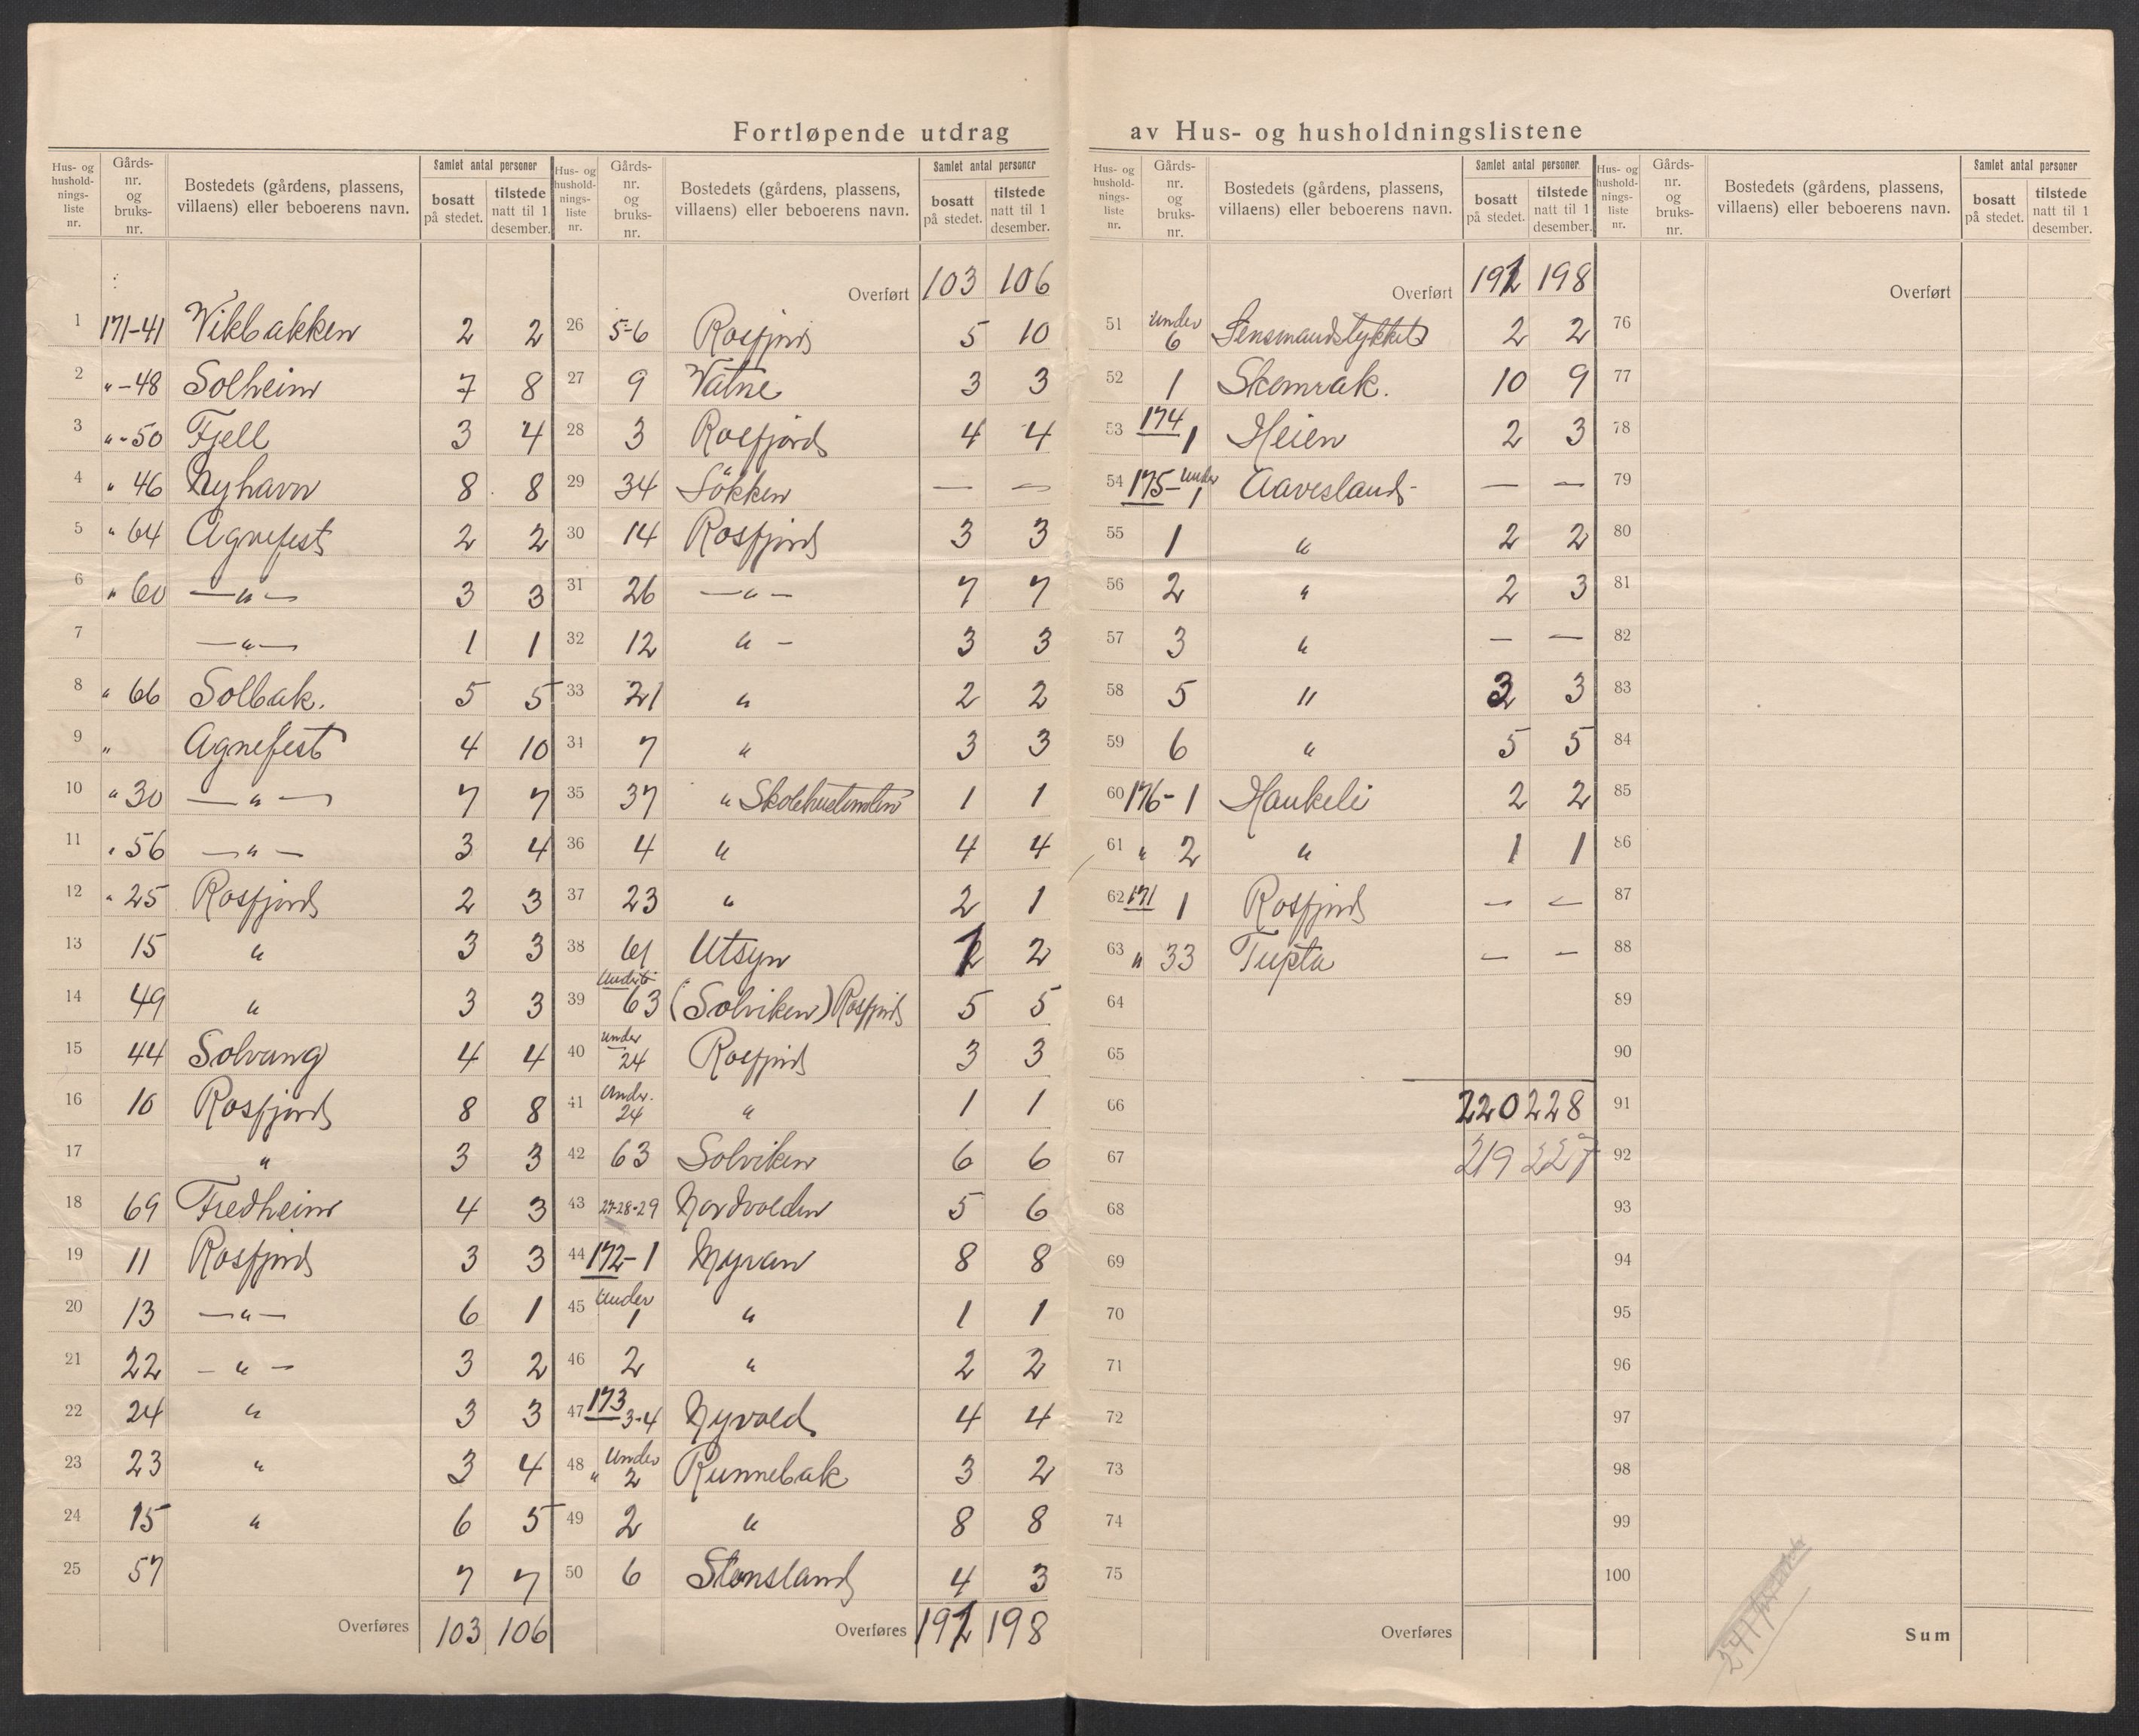 Fortløpende utdrag av Hus- og husholdningslistene
Hus- og hushold-nings-liste nr. | Gårds-nr. og bruks-nr. | Bostedets (gårdens, plassens, villaens) eller beboerens navn. | Samlet antal personer bosatt på stedet. | tilstede natt til 1 desember.
1 171-41 Vikbakken 2 2
2 " -48 Solheim 7 8
3 " -50 Fjell 3 4
4 " 46 Nyhavn 8 8
5 " 64 Agnefest 2 2
6 " 60 —"— 3 3
7 —"— 1 1
8 " 66 Solbak. 5 5
9 " Agnefest 4 10
10 " 30 —"— 7 7
11 " 56 —"— 3 4
12 " 25 Rosfjord 2 3
13 15 " 3 3
14 49 " 3 3
15 44 Solvang 4 4
16 10 Rosfjord 8 8
17 " 3 3
18 69 Fredheim 4 3
19 11 Rosfjord 3 3
20 13 —"— 6 1
21 22 —"— 3 2
22 24 " 3 3
23 23 " 3 4
24 15 " 6 5
25 57 7 7
Overføres 103 106
Hus- og hushold-nings-liste nr. | Gårds-nr. og bruks-nr. | Bostedets (gårdens, plassens, villaens) eller beboerens navn. | Samlet antal personer bosatt på stedet. | tilstede natt til 1 desember.
Overført 103 106
26 5-6 Rosfjord 5 10
27 9 Vatne 3 3
28 3 Rosfjord 4 4
29 34 Søkken — —
30 14 Rosfjord 3 3
31 26 —"— 7 7
32 12 " — 3 3
33 21 " 2 2
34 7 " 3 3
35 37 " 1 1
36 4 " 4 4
37 23 " 2 1
38 61 Utsyn 2
39 63 (Solviken) Rosfjord 5 5
40 under 24 Rosfjord 3 3
41 Under. 24 " 1 1
42 63 Solviken 6 6
43 27-28-29 Nordvolden 5 6
44 172-1 Myran 8 8
45 Under 1 " 1 1
46 2 " 2 2
47 173 3-4 Nyvold 4 4
48 " Under 2 Runnebak 3 2
49 2 " 8 8
50 6 Stensland 4 3
Overføres 191 198
Hus- og hushold-nings-liste nr. | Gårds-nr. og bruks-nr. | Bostedets (gårdens, plassens, villaens) eller beboerens navn. | Samlet antal personer bosatt på stedet. | tilstede natt til 1 desember.
Overført 191 198
51 under 6 Lensmandstykket 2 2
52 1 Skomrak. 10 9
53 174 1 Heien 2 3
54 175- under 1 Aavesland - — —
55 1 " 2 2
56 2 " 2 3
57 3 " — —
58 5 " 3 3
59 6 " 5 5
60 176-1 Haukeli 2 2
61 " 2 " 1 1
62 171 1 Rosfjord — —
63 " 33 Tupta — —
64
65
66 220 228
67 219 227
68
69
70
71
72
73
74
75
Overføres
Hus- og hushold-nings-liste nr. | Gårds-nr. og bruks-nr. | Bostedets (gårdens, plassens, villaens) eller beboerens navn. | Samlet antal personer bosatt på stedet. | tilstede natt til 1 desember.
Overført
76
77
78
79
80
81
82
83
84
85
86
87
88
89
90
91
92
93
94
95
96
97
98
99
100
Sum